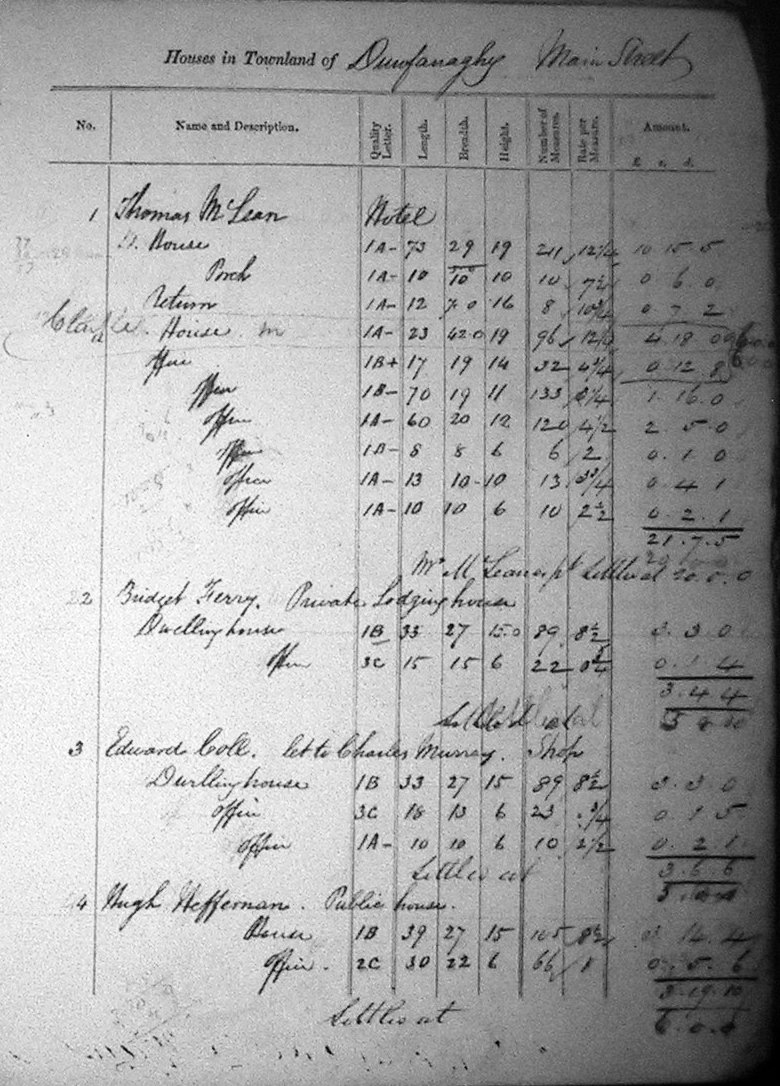 Houses in Townland of Dunfanaghy Main Street
No. Name and Description. Quality Letter. Length. Breadth. Height. Number of Measures. Rate per Measure. Amount.
£ s. d.
1 Thomas McLean Hotel
House 1A- 73 29 19 211 12 1/4 10 15 5
Porch 1A- 10 10 10 10 7 1/2 0 6 0
Return 1A- 12 7.0 16 8 10 3/4 0 7 2
House 1A- 23 42.0 19 96 12 1/4 4 18 0
Office 1B+ 17 19 14 32 4 3/4 0 12 8
Office 1B- 70 19 11 133 1/4 1 16 0
Office 1A- 60 20 12 120 4 1/2 2 5 0
Office 1B- 8 8 6 6 2 0 1 0
Office 1A- 13 10 10 13 3 3/4 0 4 1
Office 1A- 10 10 6 10 2 1/2 0 2 1
21.7.5
Mr McLean Settled at 20.0.0
2 Bridget Ferry. Private Lodging house
Dwelling house 1B 33 27 15.0 89 8 1/2 3 3 0
Office 3C 15 15 6 22 0 3/4 0 1 4
3.4.4
Settled at
3 Edward Coll. let to Charles Murray. Shop
Dwelling house 1B 33 27 15 89 8 1/2 3 3 0
Office 3C 18 13 6 23 3/4 0 1 5
Office 1A- 10 10 6 10 2 1/2 0 2 1
3.6.6
Settled at
4 Hugh Heffernan. Public house.
House 1B 39 27 15 105 8 1/2 3 14 4
Office. 2C 30 22 6 66 1 0 5 6
3.19.10
Settled at 6.0.0